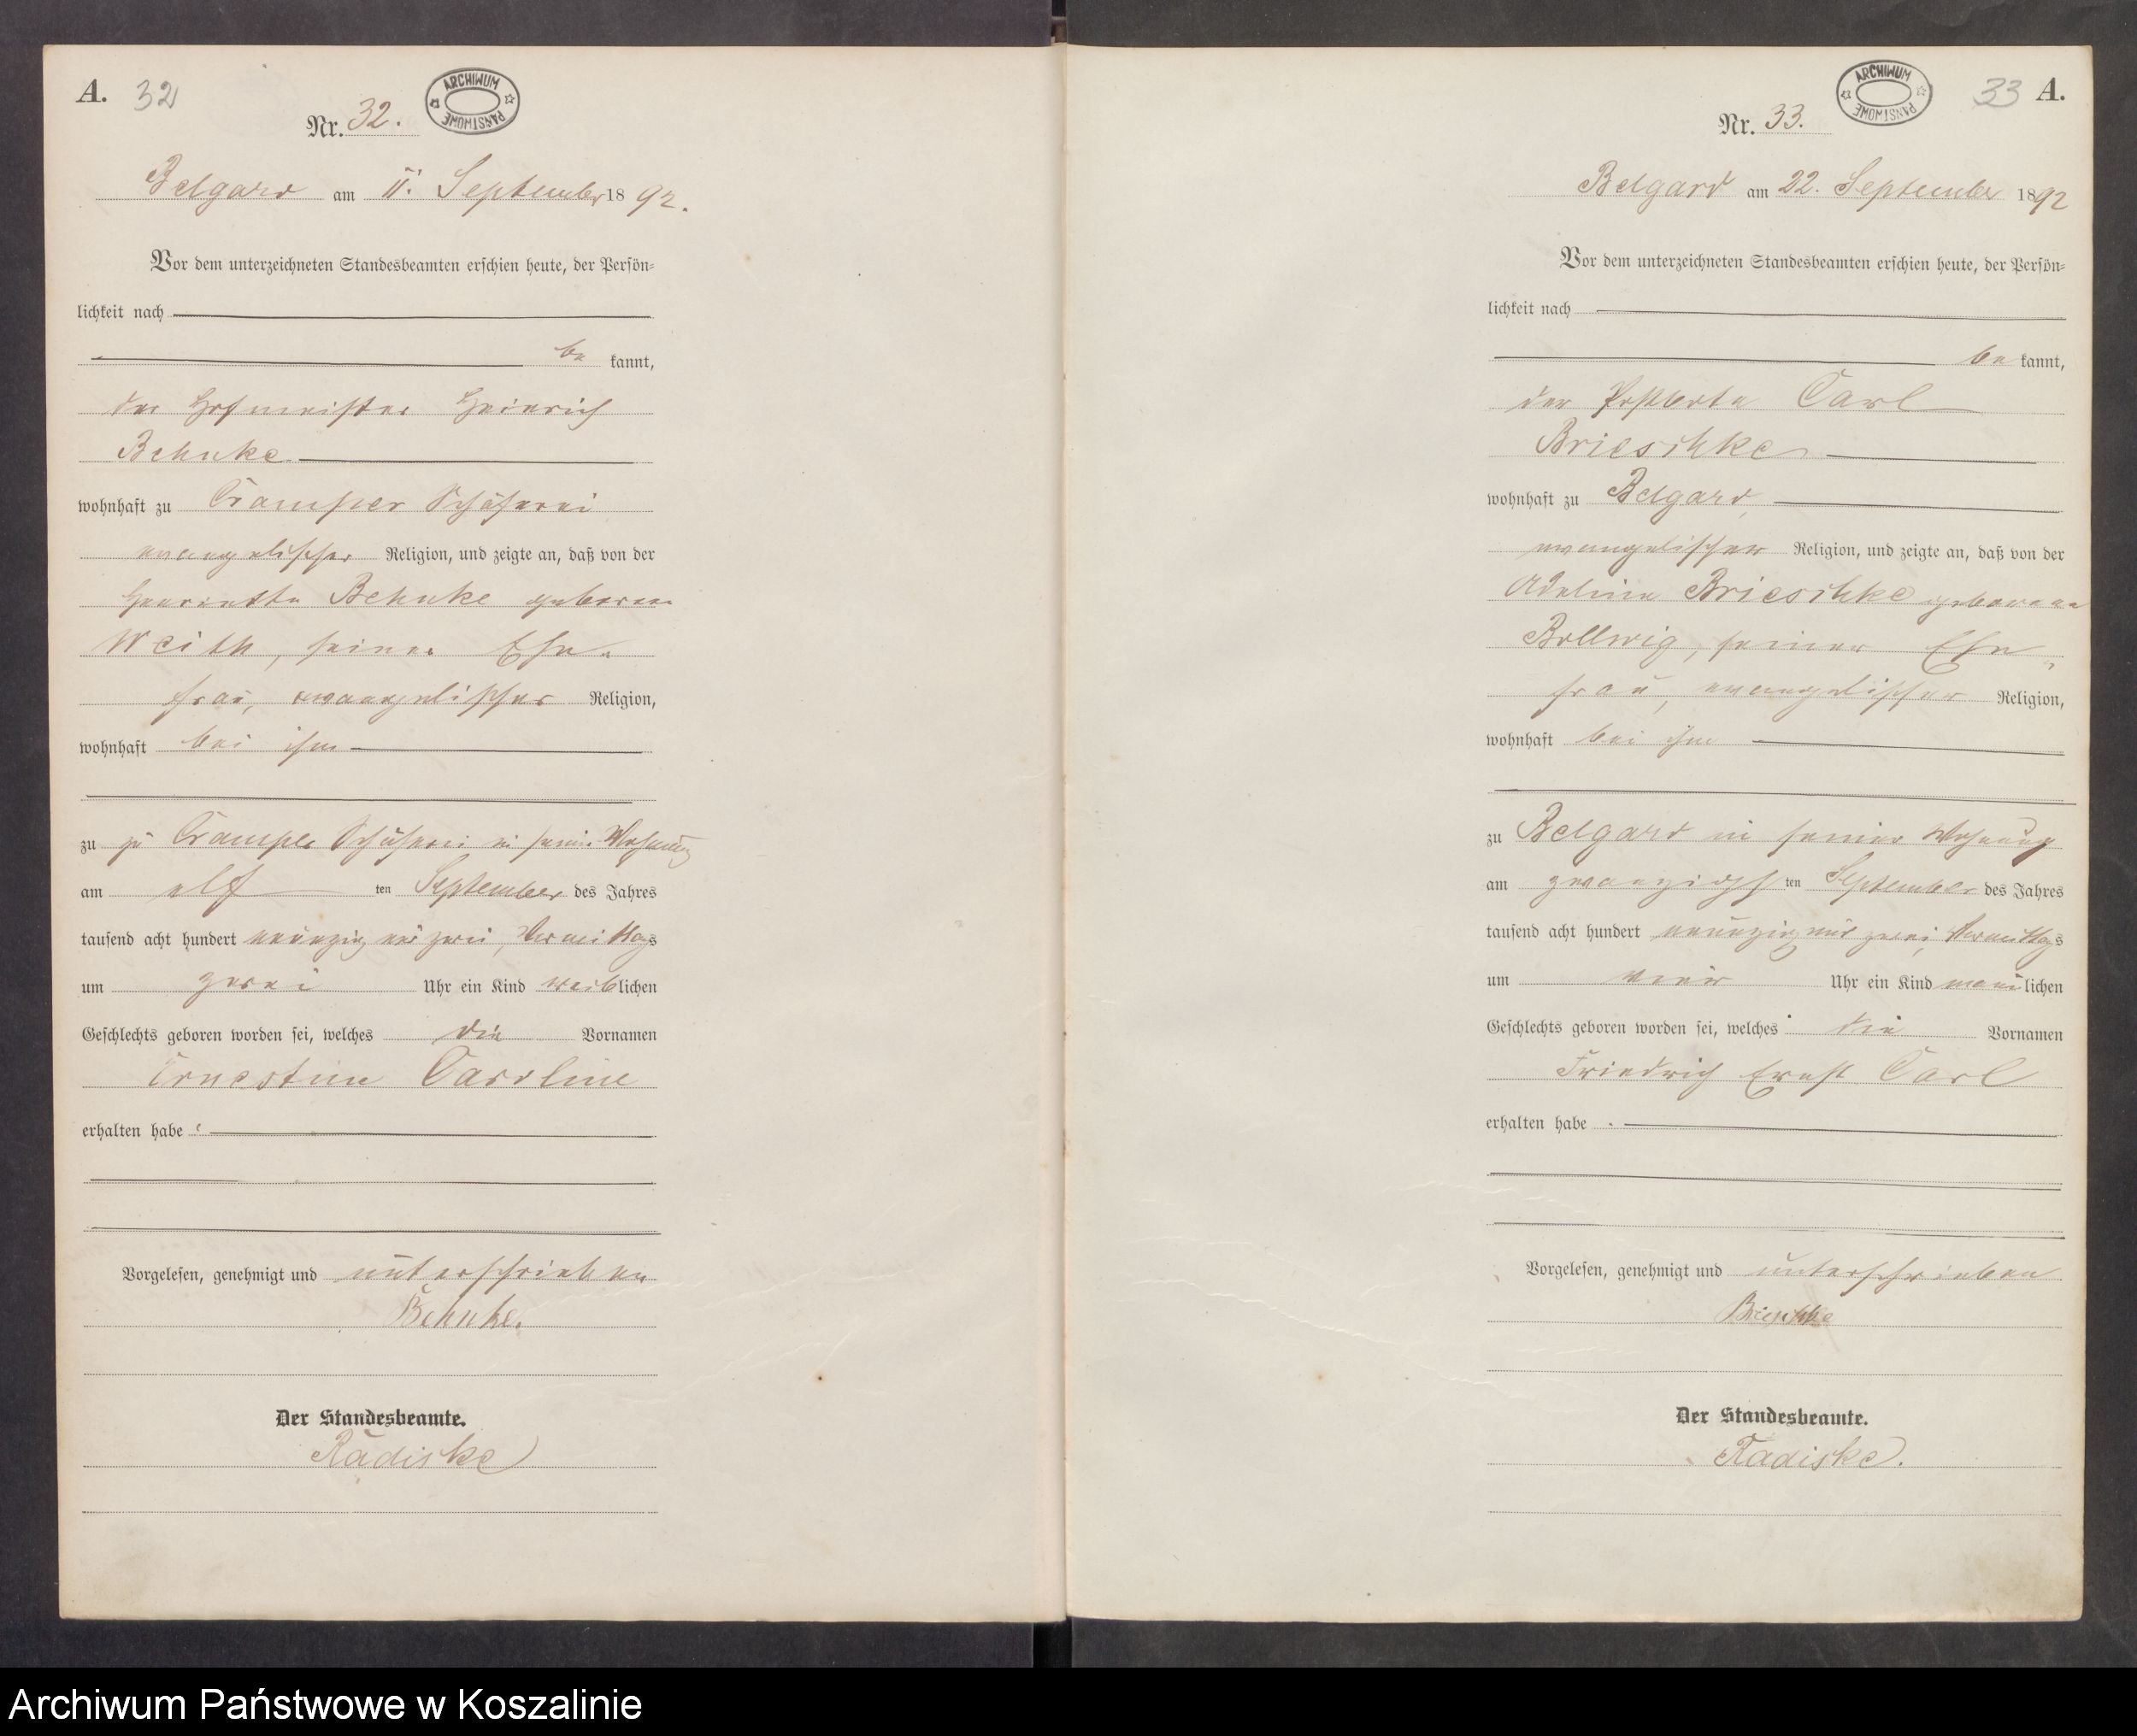 A. 32
ARCHIWUM PAŃSTWOWE
Nr. 32.
Belgard am 11. September 1892.
Vor dem unterzeichneten Standesbeamten erschien heute, der Persön-
lichkeit nach
be kannt,
der Hofmeister Heinrich
Behnke
wohnhaft zu Cramper Schäferei
evangelischer Religion, und zeigte an, daß von der
Henriette Behnke geborene
Weith, seiner Ehe-
frau, evangelischer Religion,
wohnhaft bei ihm
zu zu Cramper Schäferei in seiner Wohnung
am elf ten September des Jahres
tausend acht hundert neunzig und zwei, Vormittags
um zwei Uhr ein Kind weiblichen
Geschlechts geboren worden sei, welches die Vornamen
Ernestine Caroline
erhalten habe.
Vorgelesen, genehmigt und unterschrieben
Behnke.
Der Standesbeamte.
Radiske
ARCHIWUM PAŃSTWOWE
33 A.
Nr. 33.
Belgard am 22. September 1892
Vor dem unterzeichneten Standesbeamten erschien heute, der Persön-
lichkeit nach
be kannt,
der Postbote Carl
Brieschke
wohnhaft zu Belgard,
evangelischer Religion, und zeigte an, daß von der
Adeline Brieschke geborene
Bollwig, seiner Ehe-
frau, evangelischer Religion,
wohnhaft bei ihm
zu Belgard in seiner Wohnung
am zwanzigsten September des Jahres
tausend acht hundert neunzig und zwei, Vormittags
um vier Uhr ein Kind männlichen
Geschlechts geboren worden sei, welches die Vornamen
Friedrich Ernst Carl
erhalten habe.
Vorgelesen, genehmigt und unterschrieben
Brieschke
Der Standesbeamte.
Radiske.
Archiwum Państwowe w Koszalinie